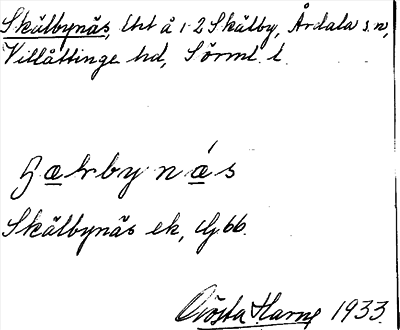 Skälbynäs, lht å 1-2 Skälby, Årdala sn,
Villåttinge hd, Sörml. l.
Skälbynäs ek, G 66.
Gösta Harne 1933.